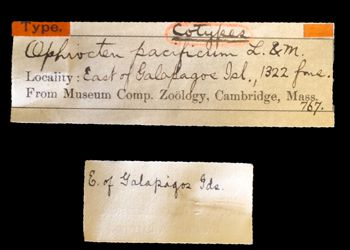 Type. Cotypes
Ophiocten pacificum L. & M.
Locality: East of Galapagoe Isl., 1322 fms.
From Museum Comp. Zoölogy, Cambridge, Mass.
767.
E. of Galapágos Ids.